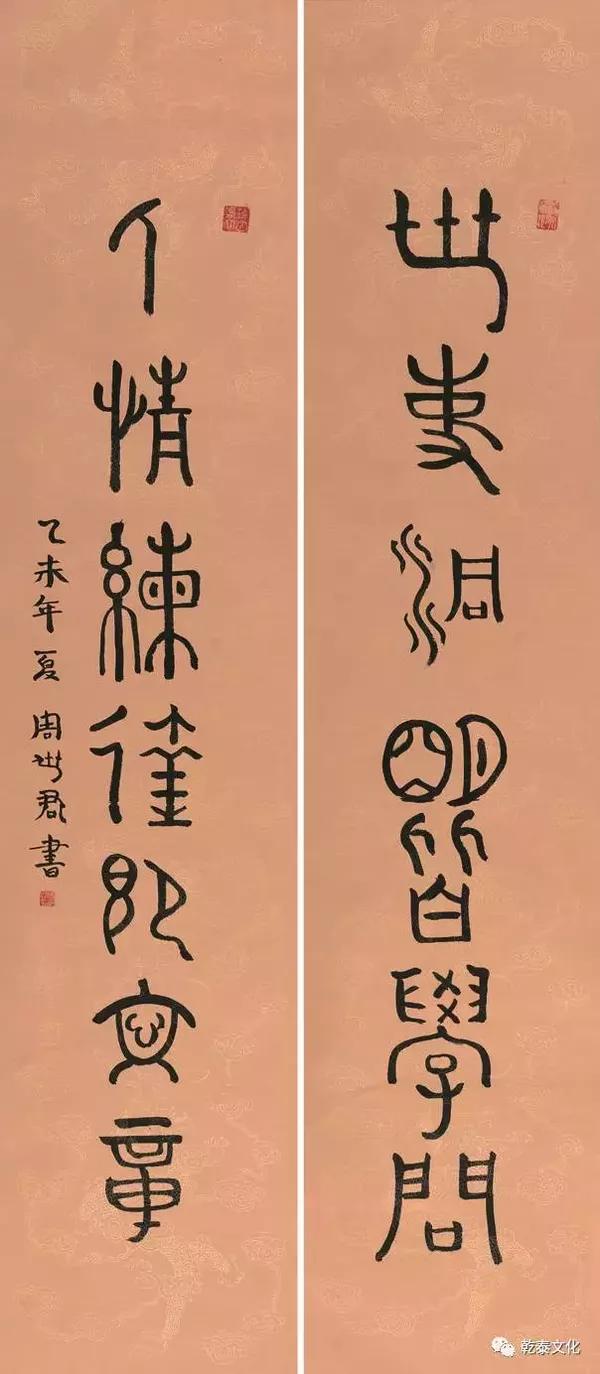 世事洞明皆學問
人情練達即文章
乙未年夏 周世君書
乾泰文化